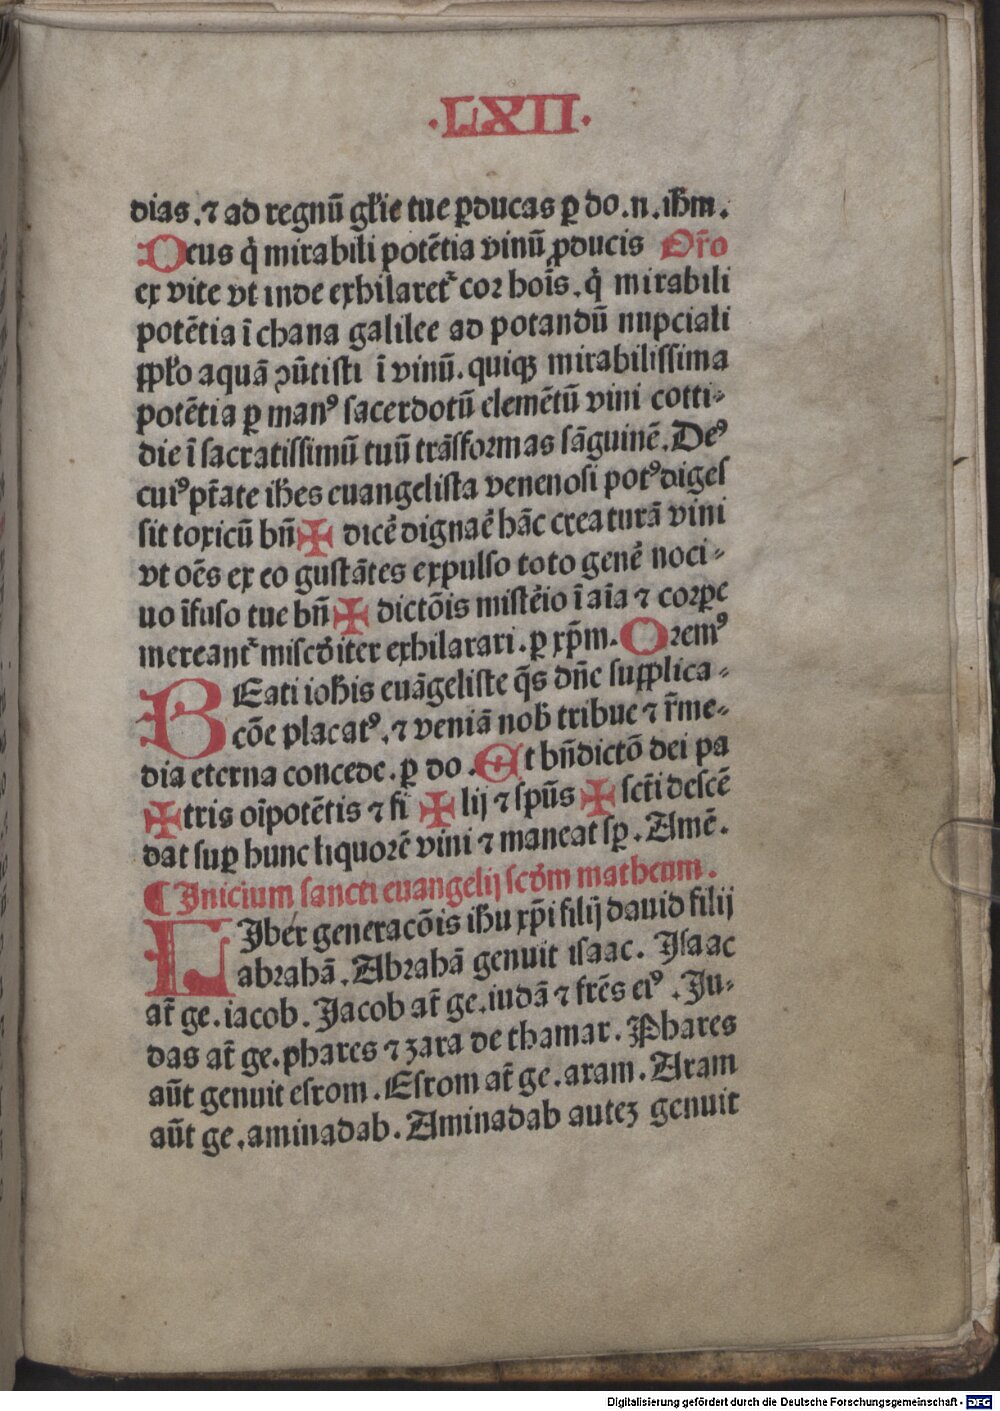 ·LXII·
dias.⁊ ad regnū gl'ie tue ꝑducas ꝑ do.n.ihm.
Deus q̇ mirabili potētia vinū ꝓducis Oro
ex vite vt inde exhilaret᷑ cor hoīs.q̇ mirabili
potētia ī chana galilee ad potandū nupciali
ꝓpl'o aquā ꝯūtisti ī vinū.quiqꝫ mirabilissima
potētia ꝑ manꝰ sacerdotū elemētū vini cotti-
die ī sacratissimū tuū trāsformas sāguinē.Deꝰ
cuiꝰ pt̄ate ihes euangelista venenosi potꝰ diges
sit toxicū bn̄ ✠ dicē dignaē hāc creaturā vini
vt oēs ex eo gustātes expulso toto genē noci-
uo īfuso tue bn̄ ✠ dictōis mistēio ī aīa ⁊ corꝑe
mereant᷑ miscḋiter exhilarari.ꝑ xp̄m. Oremꝰ
BEati iohis euāgeliste q̄s dn̄e supplica-
cōe placatꝰ.⁊ veniā nob tribue ⁊ r̄me-
dia eterna concede.ꝑ do. Et bn̄dictō dei pa
✠ tris oīpotētis ⁊ fi ✠ lij ⁊ spūs ✠ sct̄i descē
dat suꝑ hunc liquorē vini ⁊ maneat sꝑ.Amē.
¶ Inicium sancti euangelij scḋm matheum.
LIber generacōis ihu xp̄i filij dauid filij
abrahā.Abrahā genuit isaac. Isaac
at̄ ge.iacob.Jacob at̄ ge.iudā ⁊ fr̄es eiꝰ.Ju-
das at̄ ge.phares ⁊ zara de thamar.Phares
aūt genuit esrom.Esrom at̄ ge.aram.Aram
aūt ge.aminadab.Aminadab auteꝫ genuit
Digitalisierung gefördert durch die Deutsche Forschungsgemeinschaft - DFG